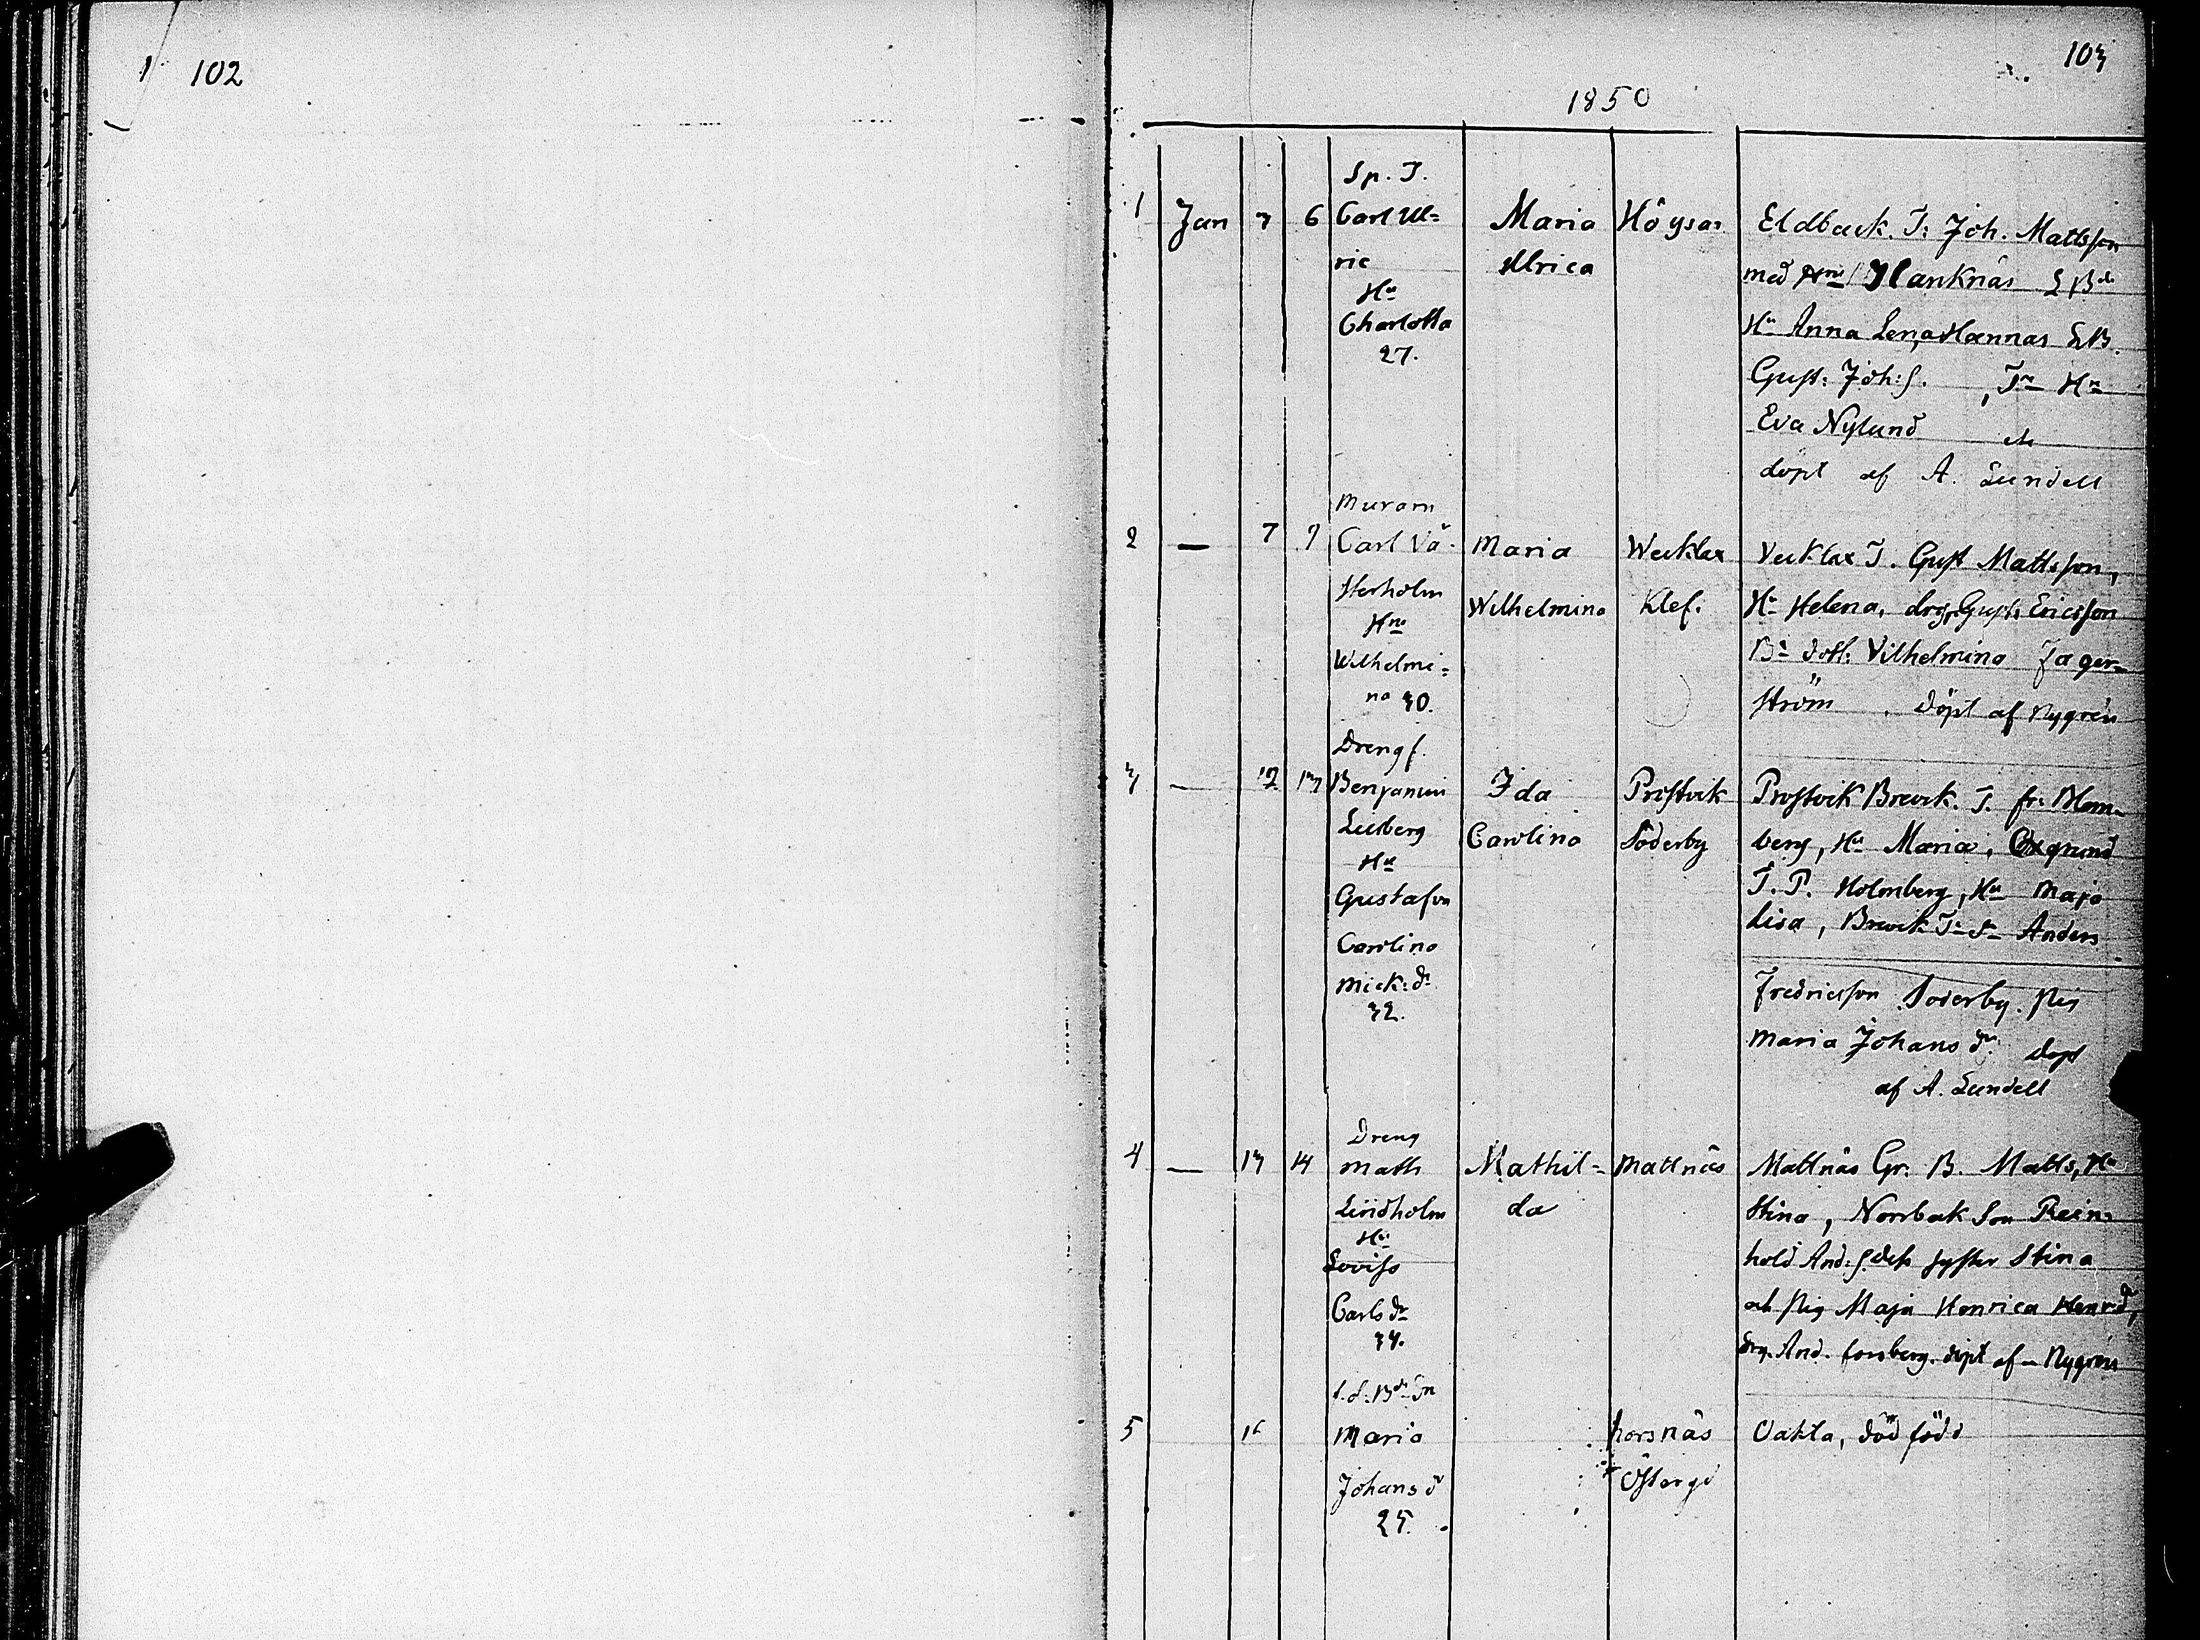 102
103
1850
1 Jan 3 6
Sp. T.
Carl Ul=
ric
Hu
Charlotta
27.
Maria
Ulrica
Högsar
Eldback. T: Joh. Mattsson
med Hanknäs
Hu Anna Lena, Hannas
Gust: Joh:s. , Hu
Eva Nylund
döpt af A. Lundell
2 — 7 9
Murarn
Carl Vä-
sterholm
Hu
Wilhelmi=
na 30.
Maria
Wilhelmina
Wecklax
Klef.
Vecklax T. Gust Mattsson,
Hu Helena, drg, Gust. Ericsson
Vilhelmina Fager=
ström . Döpt af Nygrén
3 — 12 13
Drengs.
Benjamin
Lusberg
Hu
Gustafva
Carolina
Mick: dr
32.
Ida
Carolina
Prostvik
Söderby
Prostvik Brevik. T. fr: Blom=
berg, Hu Maria, Oxgrund
T. P. Holmberg, Hu Maja
Lisa, Anders
Fredricsson Söderby. Pig
Maria Johans dr. döpt
af A. Lundell
4 — 13 14
Dreng
Math
Lindholm
Hu
Lovisa
Carls dr
34.
Mathil=
da
Mattnäs
Mattnäs Gr. B. Matts, Hu
Stina, Norrback Son Rein=
hold And:s. dess syster Stina
och Pig Maja Henrica
drg. And. forsberg. döpt af Nygrén
5
Maria
Johans d
25.
horsnäs
Östergd
Oäkta, död född